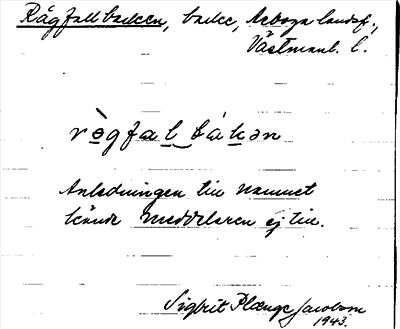 Rågfallbacken, backe, Arboga landsf.,
Västmanl. l.
rògfal_bákən
Anledningen till namnet
kände meddelaren ej till.
Sigbrit Plænge Jacobson
1943.